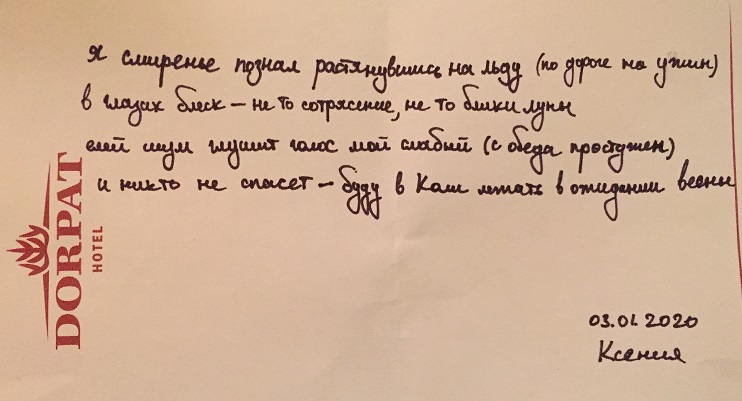 я смиренье познал растянувшись на льду (по дороге на ужин)
в глазах блеск – не то сотрясение, не то блики луны
шум глушит голос мой слабый (с обеда простужен)
и никто не спасет – буду в лежать в ожидании весны
DORPAT
HOTEL
03.01.2020
Ксения